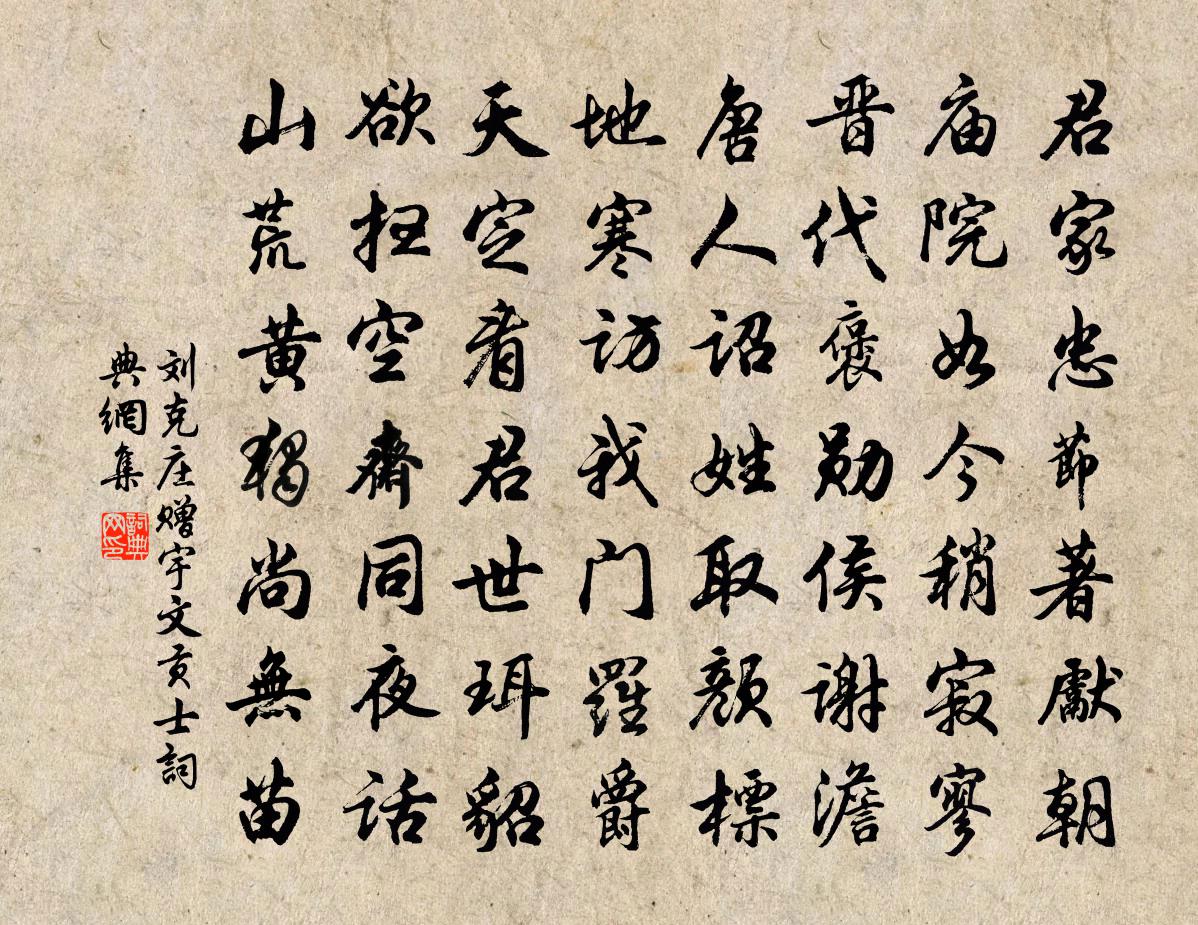 君家忠節著獻朝
庙院如今稍寂寥
晋代褒勋侯谢澹
唐人詔姓取颜標
地寒訪我门羅爵
天定看君世珥貂
欲扫空齋同夜话
山荒黄独尚無苗
刘克庄赠宇文贡士詞
典網集
詞典网印